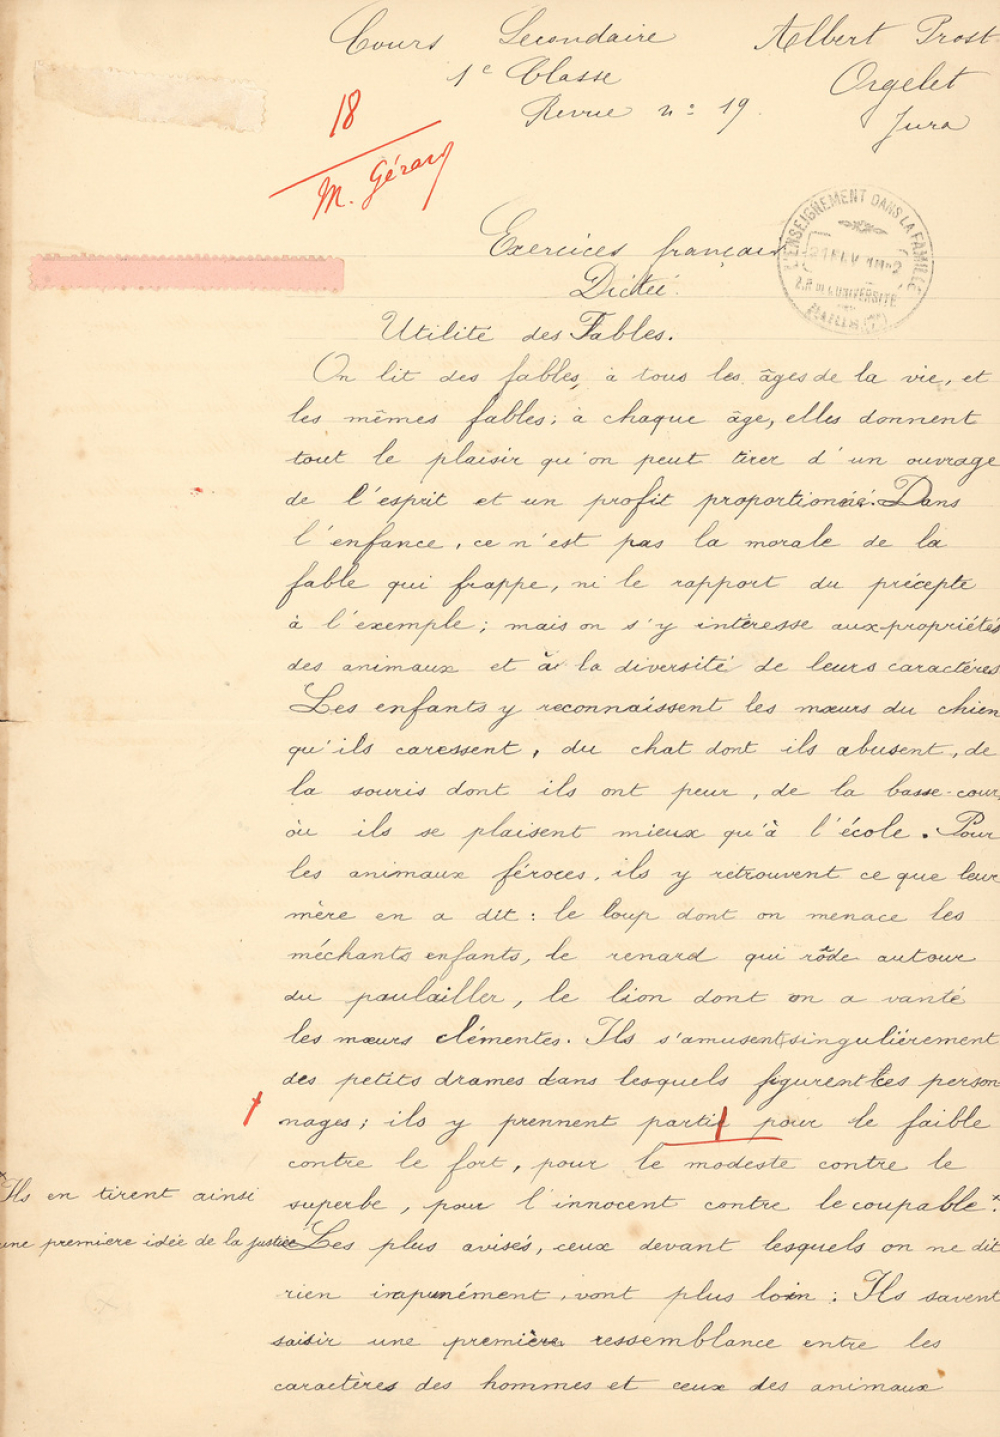 Cours Secondaire Albert Prost
1e Classe Orgelet
Revue n: 19. Jura
18
M. Gérard
Exercices français
L'ENSEIGNEMENT DANS LA FAMILLE
R. DE L'UNIVERSITÉ
Dictée.
Utilité des Fables.
On lit des fables, à tous les âges de la vie, et
les mêmes fables; à chaque âge, elles donnent
tout le plaisir qu'on peut tirer d'un ouvrage
de l'esprit et un profit proportionné. Dans
l'enfance, ce n'est pas la morale de la
fable qui frappe, ni le rapport du précepte
à l'exemple; mais on s'y intéresse aux propriétés
des animaux et à la diversité de leurs caractères
Les enfants y reconnaissent les mœurs du chien
qu'ils caressent, du chat dont ils abusent, de
la souris dont ils ont peur, de la basse-cour,
où ils se plaisent mieux qu'à l'école. Pour
les animaux féroces, ils y retrouvent ce que leur
mère en a dit: le loup dont on menace les
méchants enfants, le renard qui rôde autour
du poulailler, le lion dont on a vanté
les mœurs clémentes. Ils s'amusent singulièrement
des petits drames dans lesquels figurent les person
nages; ils y prennent parti pour le faible
contre le fort, pour le modeste contre le
superbe, pour l'innocent contre le coupable*.
*Ils en tirent ainsi
une première idée de la justice
Les plus avisés, ceux devant lesquels on ne dit
rien impunément, vont plus loin: Ils savent
saisir une première ressemblance entre les
caractères des hommes et ceux des animaux